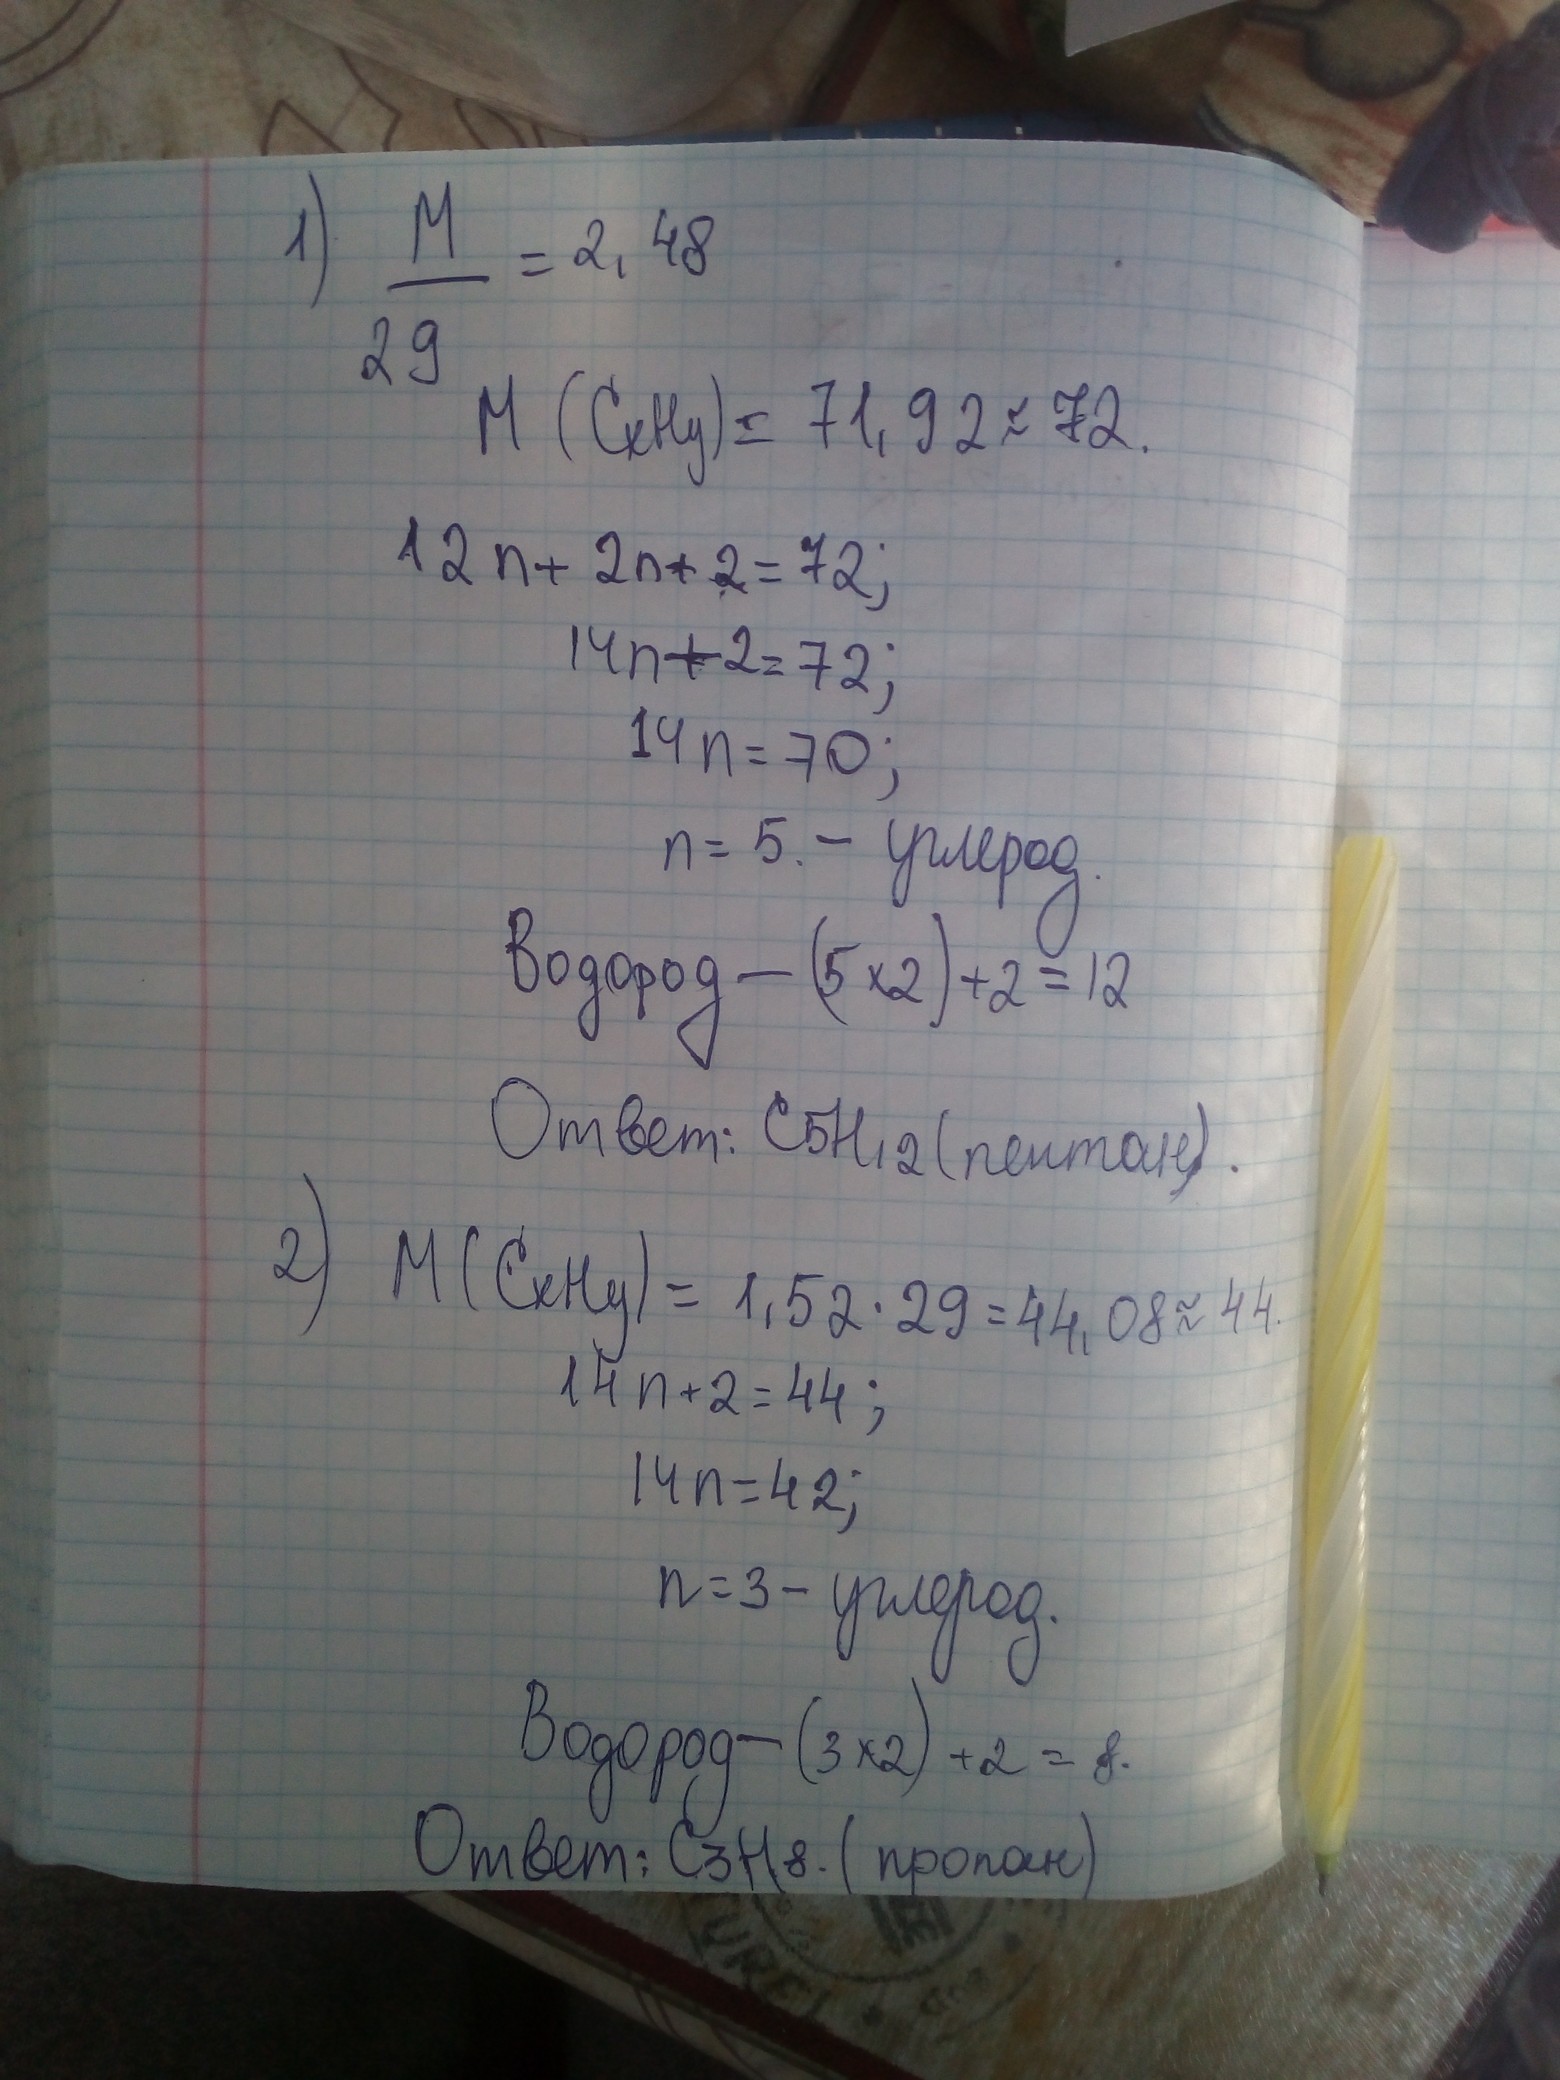 1) М
29 = 2,48
М (СхНу) = 71,92 ≈ 72.
12n + 2n + 2 = 72;
14n + 2 = 72;
14n = 70;
n = 5. – углерод.
Водород – (5x2) + 2 = 12
Ответ: C5H12 (пентан).
2) М (СхНу) = 1,52 · 29 = 44,08 ≈ 44.
14n + 2 = 44;
14n = 42;
n = 3 – углерод.
Водород – (3x2) + 2 = 8.
Ответ: C3H8. (пропан)